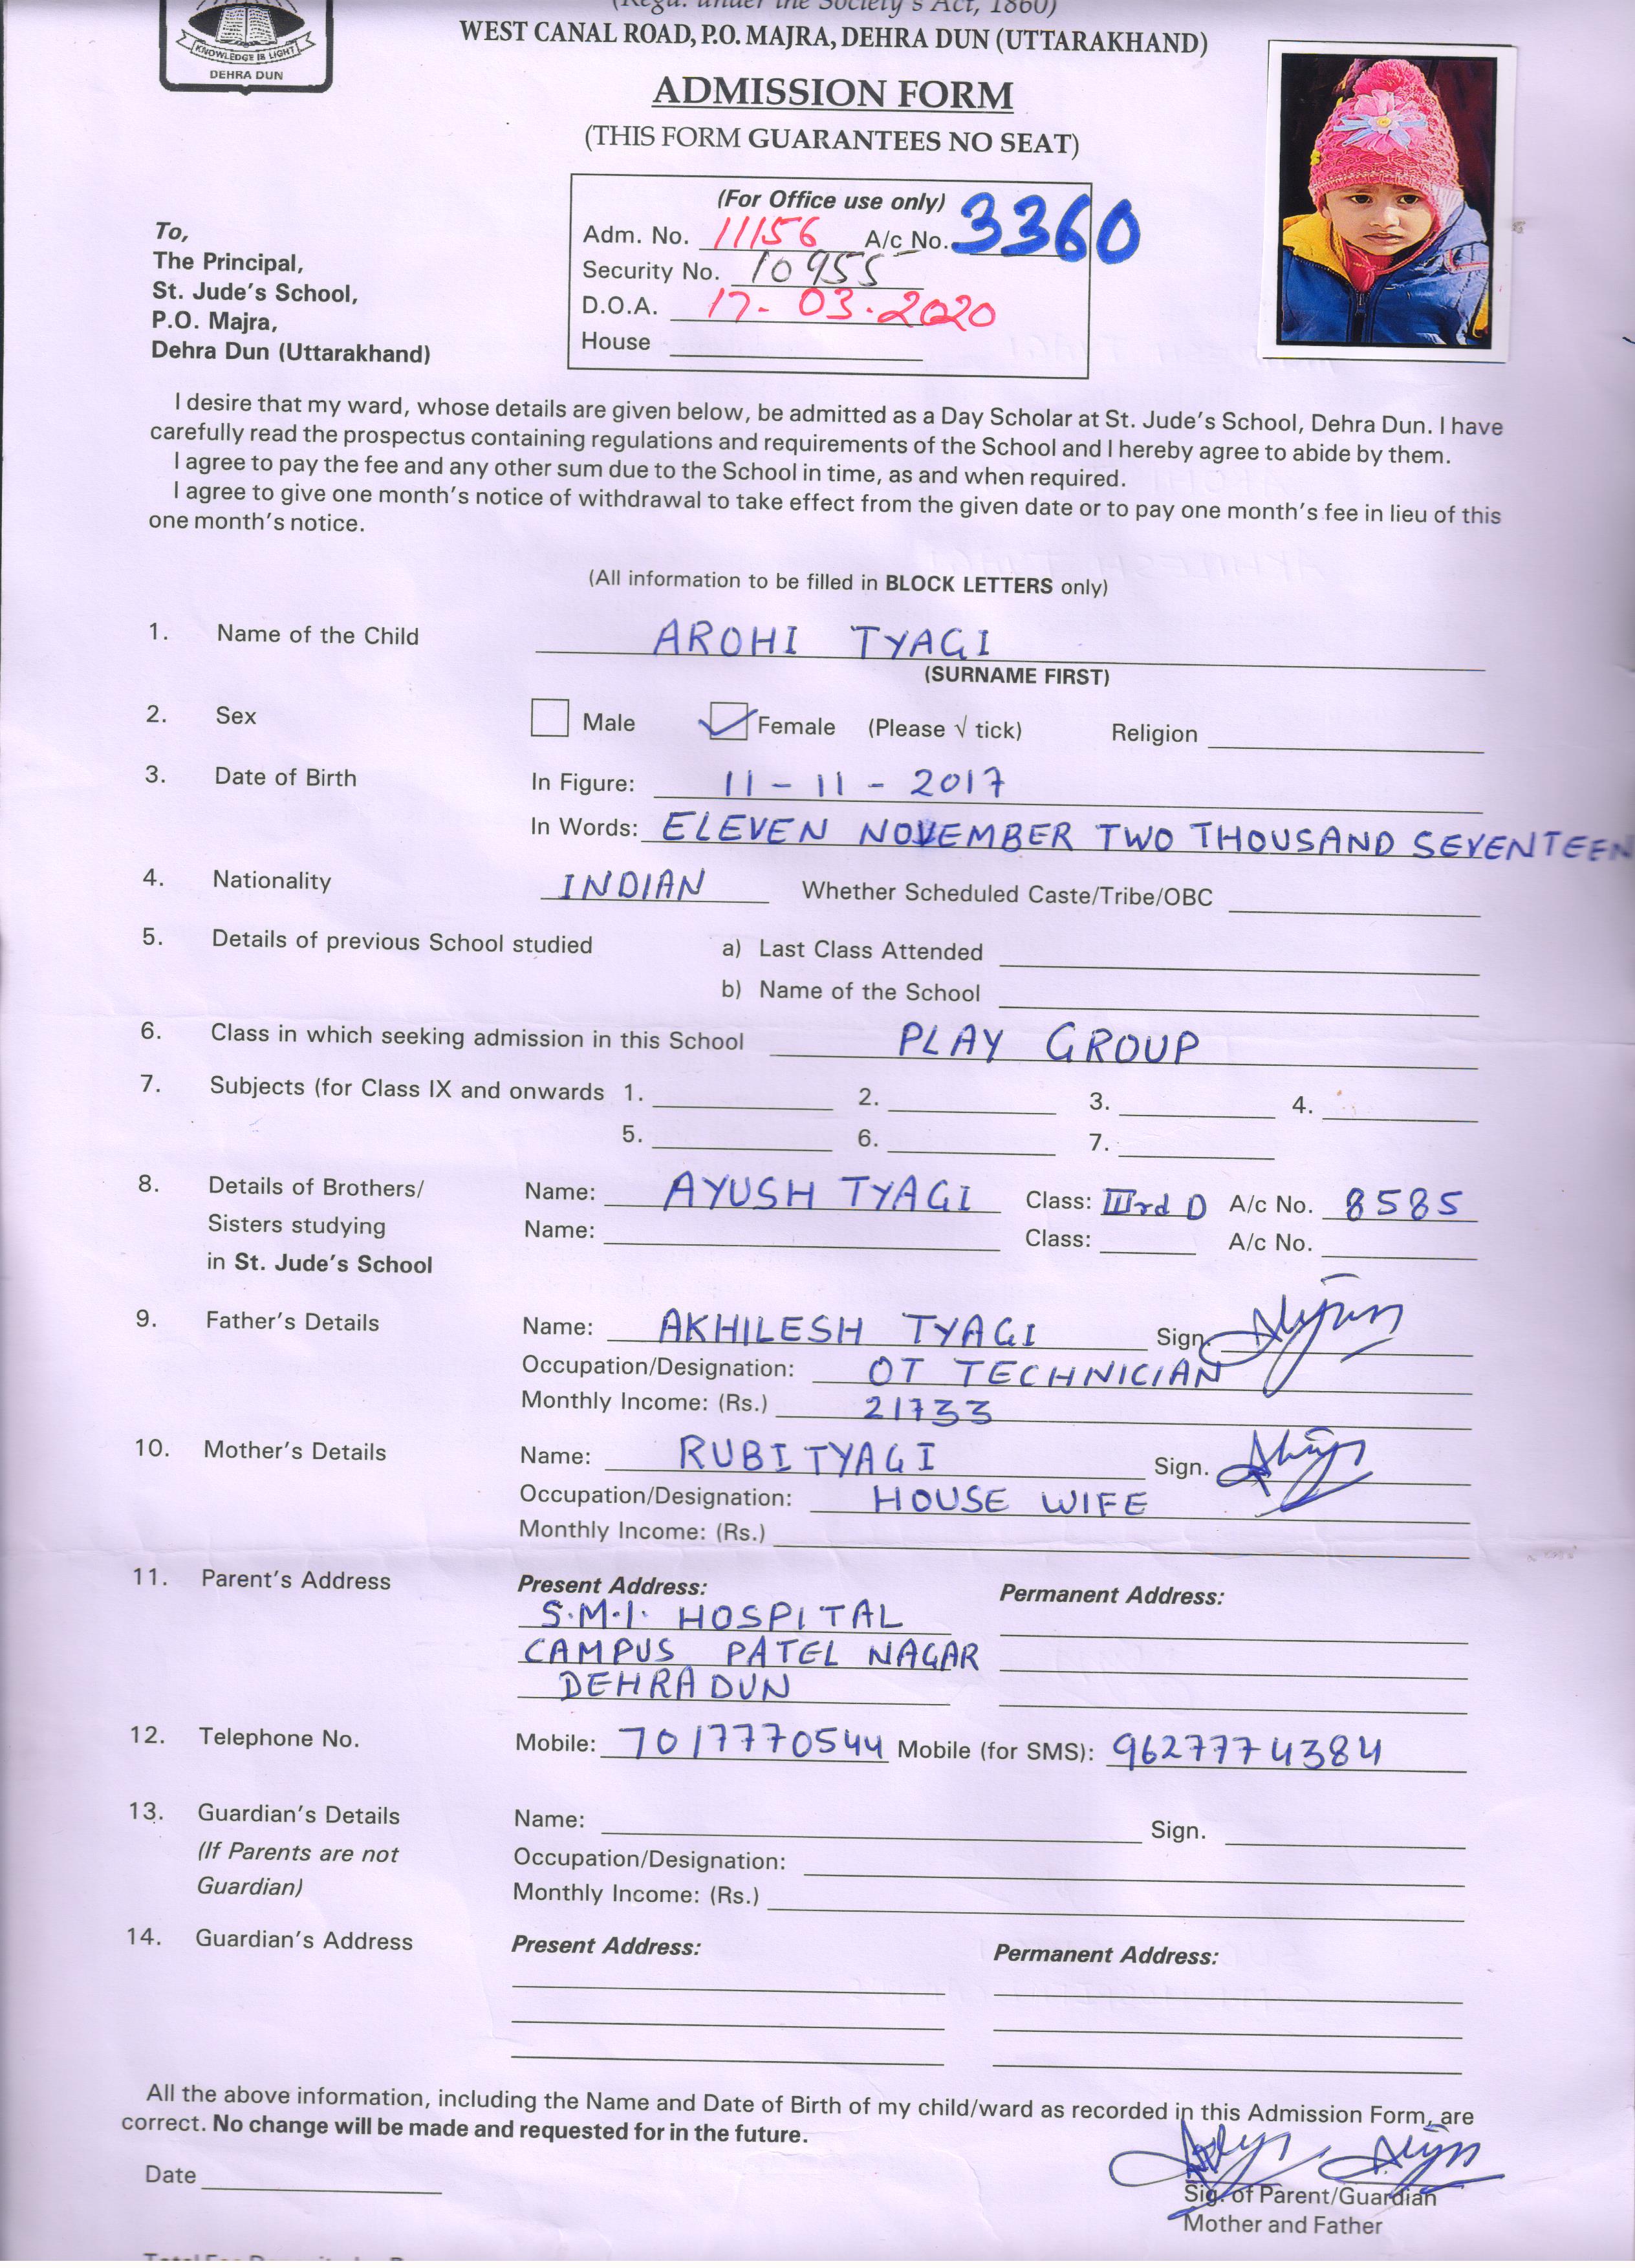 (Regd. under the Society's Act, 1860)
WEST CANAL ROAD, P.O. MAJRA, DEHRA DUN (UTTARAKHAND)
KNOWLEDGE IS LIGHT
DEHRA DUN
ADMISSION FORM
(THIS FORM GUARANTEES NO SEAT)
(For Office use only)
Adm. No. 11156 A/c No. 3360
Security No. 10955
D.O.A. 17-03-2020
House
To,
The Principal,
St. Jude's School,
P.O. Majra,
Dehra Dun (Uttarakhand)
I desire that my ward, whose details are given below, be admitted as a Day Scholar at St. Jude's School, Dehra Dun. I have
carefully read the prospectus containing regulations and requirements of the School and I hereby agree to abide by them.
I agree to pay the fee and any other sum due to the School in time, as and when required.
I agree to give one month's notice of withdrawal to take effect from the given date or to pay one month's fee in lieu of this
one month's notice.
(All information to be filled in BLOCK LETTERS only)
1. Name of the Child AROHI TYAGI
(SURNAME FIRST)
2. Sex Male Female (Please √ tick) Religion
3. Date of Birth In Figure: 11-11-2017
In Words: ELEVEN NOVEMBER TWO THOUSAND SEVENTEEN
4. Nationality INDIAN Whether Scheduled Caste/Tribe/OBC
5. Details of previous School studied a) Last Class Attended
b) Name of the School
6. Class in which seeking admission in this School PLAY GROUP
7. Subjects (for Class IX and onwards 1. 2. 3. 4.
5. 6. 7.
8. Details of Brothers/ Name: AYUSH TYAGI Class: IIIrd D A/c No. 8585
Sisters studying Name: Class: A/c No.
in St. Jude's School
9. Father's Details Name: AKHILESH TYAGI Sign.
Occupation/Designation: OT TECHNICIAN
Monthly Income: (Rs.) 21733
10. Mother's Details Name: RUBI TYAGI Sign.
Occupation/Designation: HOUSE WIFE
Monthly Income: (Rs.)
11. Parent's Address Present Address: Permanent Address:
S.M.I. HOSPITAL
CAMPUS PATEL NAGAR
DEHRADUN
12. Telephone No. Mobile: 7017770544 Mobile (for SMS): 9627774384
13. Guardian's Details Name: Sign.
(If Parents are not Occupation/Designation:
Guardian) Monthly Income: (Rs.)
14. Guardian's Address Present Address: Permanent Address:
All the above information, including the Name and Date of Birth of my child/ward as recorded in this Admission Form, are
correct. No change will be made and requested for in the future.
Date
Sig. of Parent/Guardian
Mother and Father